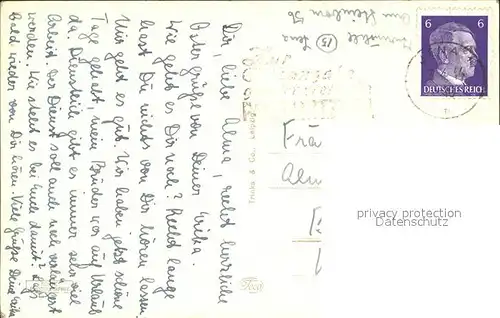 Dir, liebe Alma, recht herzliche
Ostergrüße von Deiner Erika.
Wie geht es Dir noch? Recht lange
hast Du nichts von Dir hören lassen.
Mir geht es gut. Wir haben jetzt schöne
Tage gehabt, mein Bruder war auf Urlaub
da. Dienstlich gibt es immer sehr viel
Arbeit, der Dienst soll auch noch verlängert
werden. Wie steht es bei Euch damit?
bald wieder von Dir hören. Viele Grüße Deine Erika
(15) Jena
56
6 6
DEUTSCHES REICH
Trinks & Co., Leipzig
Frä
Alm
privacy protection
Datenschutz